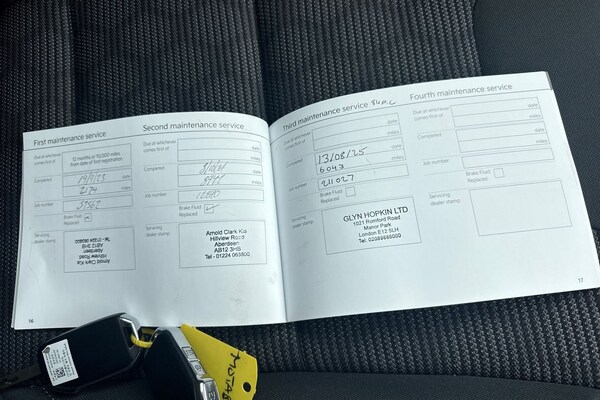 First maintenance service
Due at whichever
comes first of:
12 months or 10,000 miles
from date of first registration
Completed
19/9/23
date
2174
miles
Job number
57567
Brake Fluid
Replaced
Servicing
dealer stamp
Arnold Clark Kia
Hillview Road
Aberdeen
AB12 3HS
16
Second maintenance service
Due at whichever
comes first of:
date
miles
Completed
date
miles
Job number
Brake Fluid
Replaced
Servicing
dealer stamp
Arnold Clark Kia
Hillview Road
Aberdeen
AB12 3HS
Tel - 01224 063800
Third maintenance service
Due at whichever
comes first of:
date
miles
Completed
13/08/25
date
6043
miles
Job number
211027
Brake Fluid
Replaced
Servicing
dealer stamp
GLYN HOPKIN LTD
1021 Romford Road
Manor Park
London E12 5LH
Fourth maintenance service
Due at whichever
comes first of:
date
miles
Completed
date
miles
Job number
Brake Fluid
Replaced
Servicing
dealer stamp
17